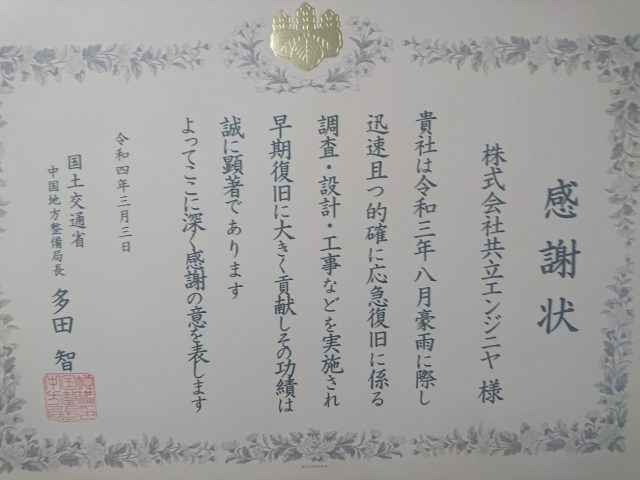 感謝状
株式会社共立エンジニヤ 様
貴社は令和三年八月豪雨に際し
迅速且つ的確に応急復旧に係る
調査・設計・工事などを実施され
早期復旧に大きく貢献しその功績は
誠に顕著であります
よってここに深く感謝の意を表します
令和四年三月三日
国土交通省
中国地方整備局長 多田 智